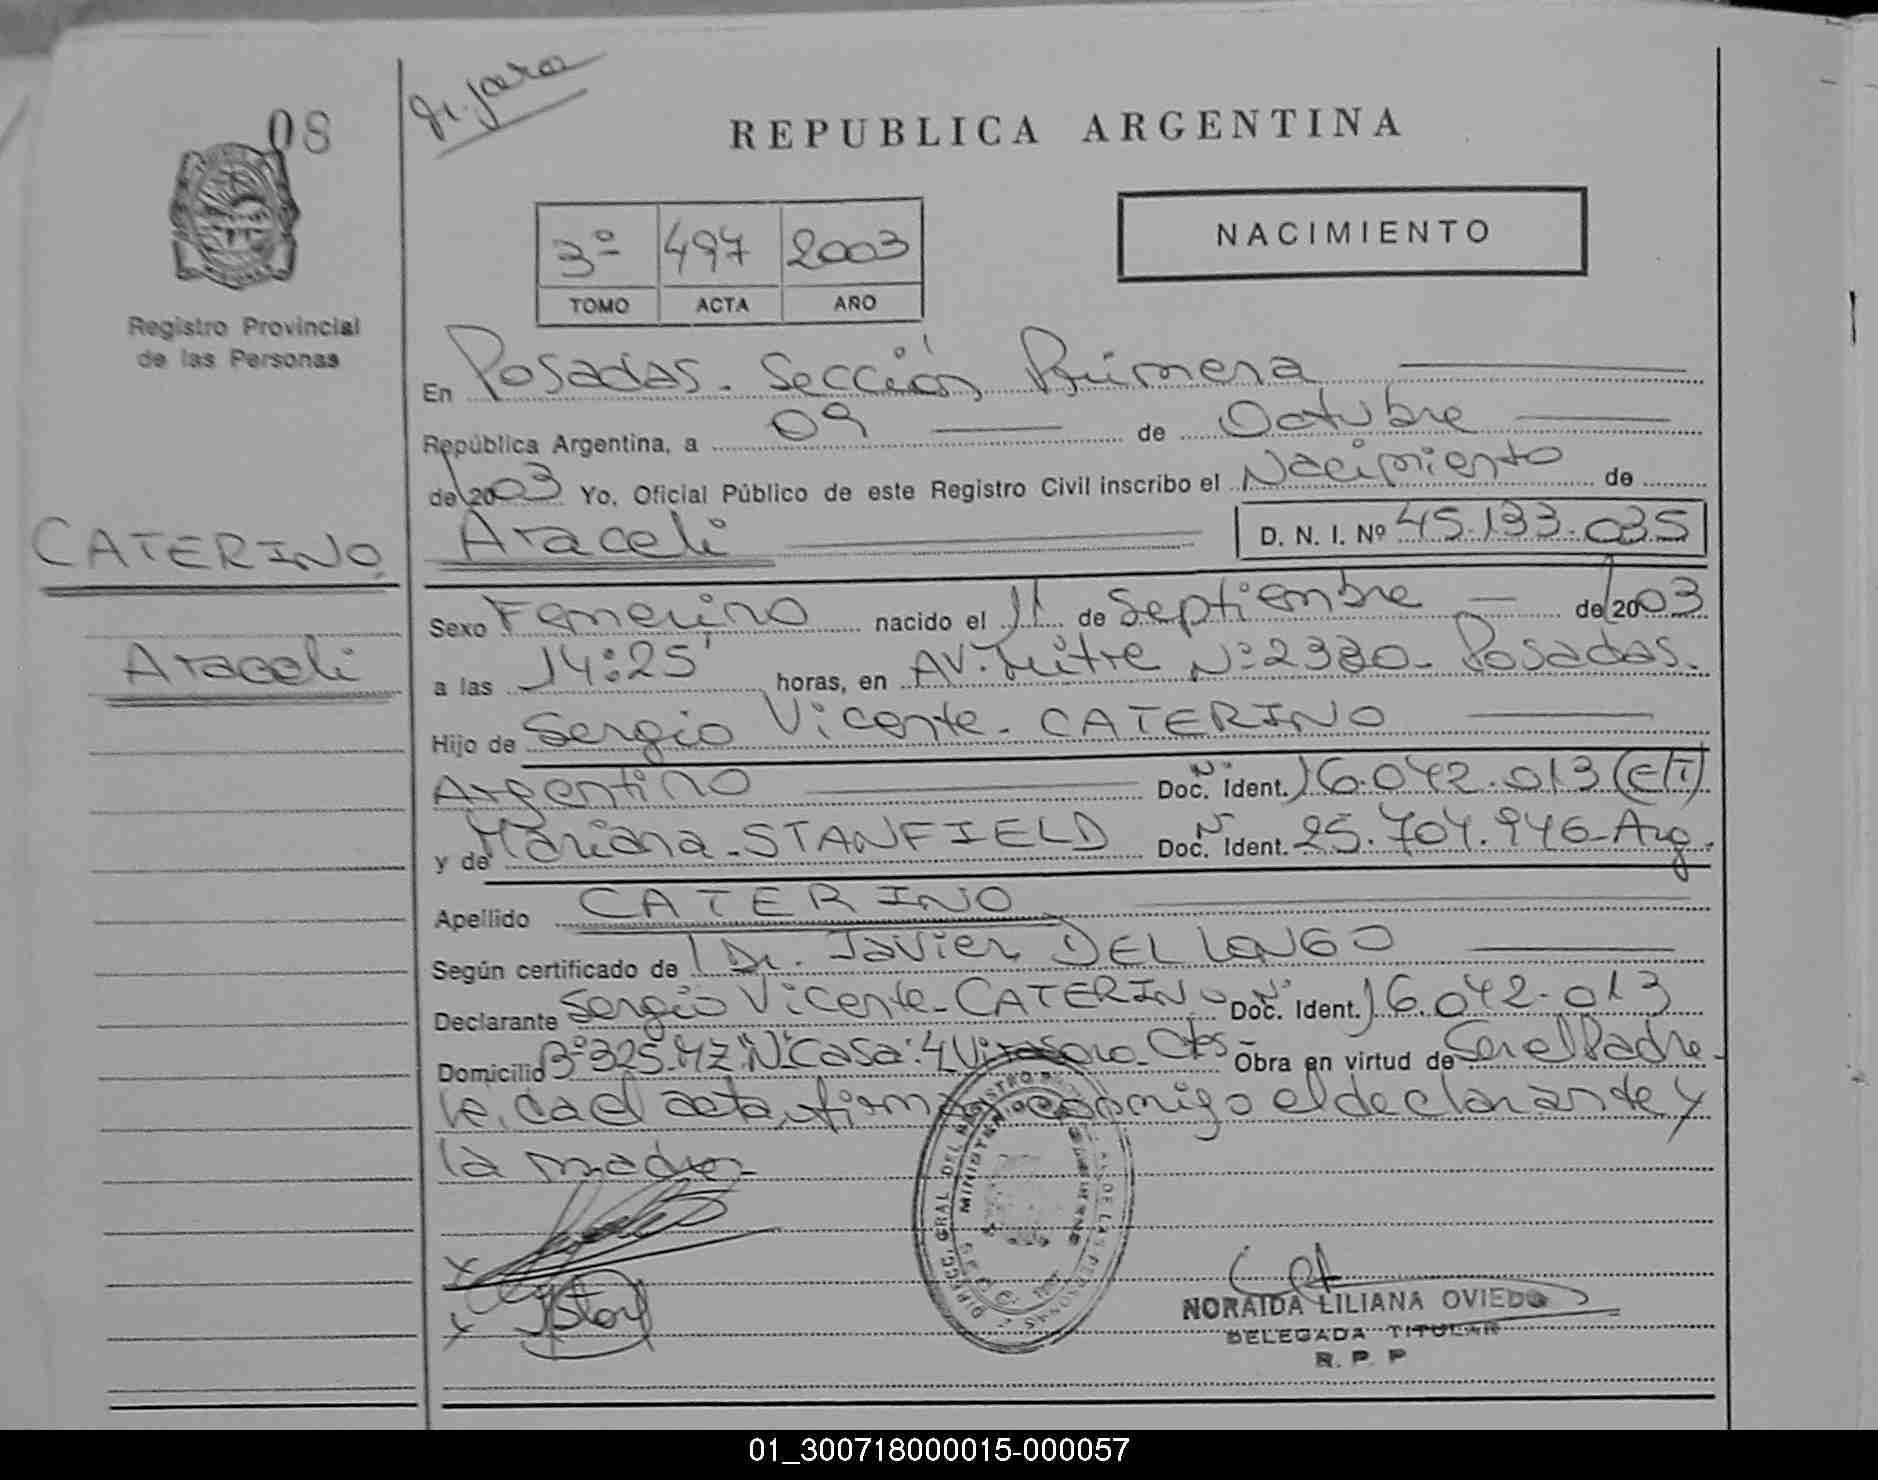 08
REPUBLICA ARGENTINA
3º 497 2003
TOMO ACTA AÑO
NACIMIENTO
Registro Provincial
de las Personas
En Posadas. Sección Primera
República Argentina, a 09 de Octubre
de 2003 Yo, Oficial Público de este Registro Civil inscribo el Nacimiento de
CATERINO
Araceli
Araceli D. N. I. Nº 45.133.035
Sexo Femenino nacido el 11 de Septiembre de 2003
a las 14:25' horas, en AV. Mitre Nº 2380. Posadas.
Hijo de Sergio Vicente. CATERINO
Argentino Doc. Nº Ident. 16.042.013 (C/I)
y de Mariana. STANFIELD Doc. N Ident. 25.704.946-Arg.
Apellido CATERINO
Según certificado de Dr. Javier DEL LONGO
Declarante Sergio Vicente. CATERINO Doc. Nº Ident. 16.042.013
Domicilio Bº 325. MZ "N" Casa: 4 Virasoro. Ctes Obra en virtud de Ser el Padre.
leída el acta, firma conmigo el declarante y
la madre
DIRECC. GRAL. DEL REGISTRO
MINISTERIO DE GOBIERNO
NORAIDA LILIANA OVIEDO
DELEGADA TITULAR
R. P. P
01_300718000015-000057